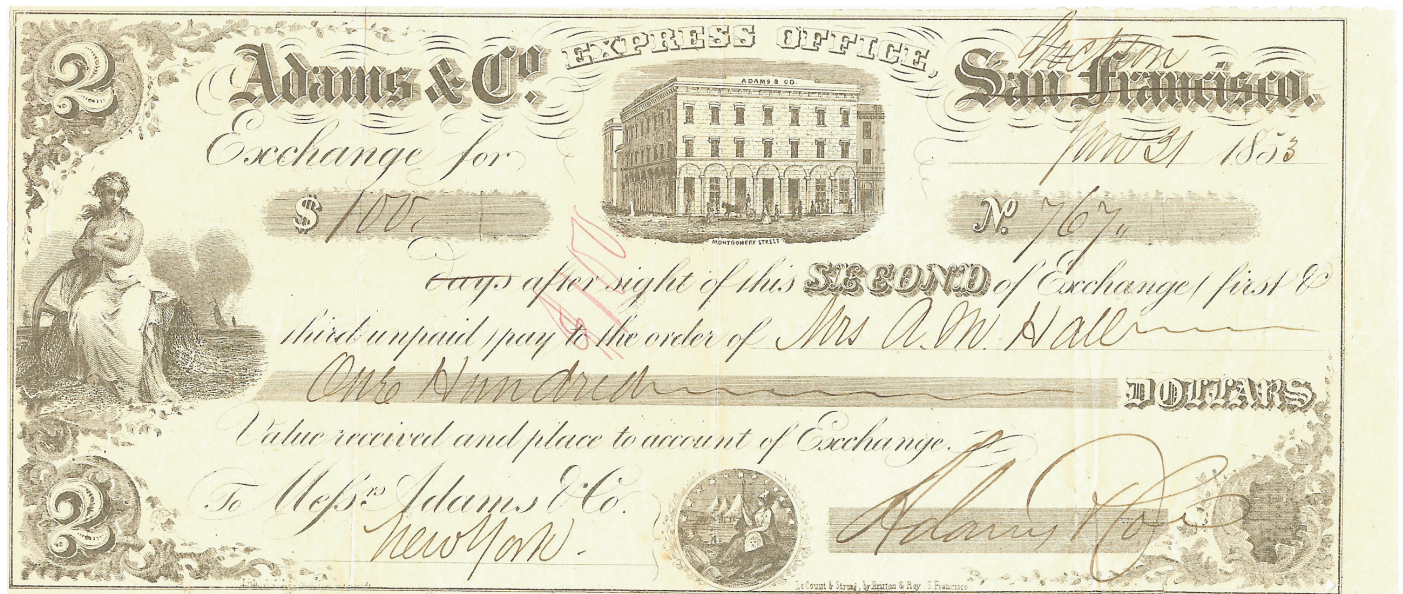 2
Adams & Co.
EXPRESS OFFICE,
Stockton
San Francisco.
ADAMS & CO.
MONTGOMERY STREET
Exchange for
Jan 31 1853
$ 100.
No. 767
$100
Days after sight of this SECOND of Exchange (first &
third unpaid) pay to the order of Mrs A. M. Hall
One Hundred DOLLARS
Value received and place to account of Exchange.
2
To Messrs. Adams & Co.
New York.
Adams & Co
Le Count & Strong, by Britton & Rey S. Francisco